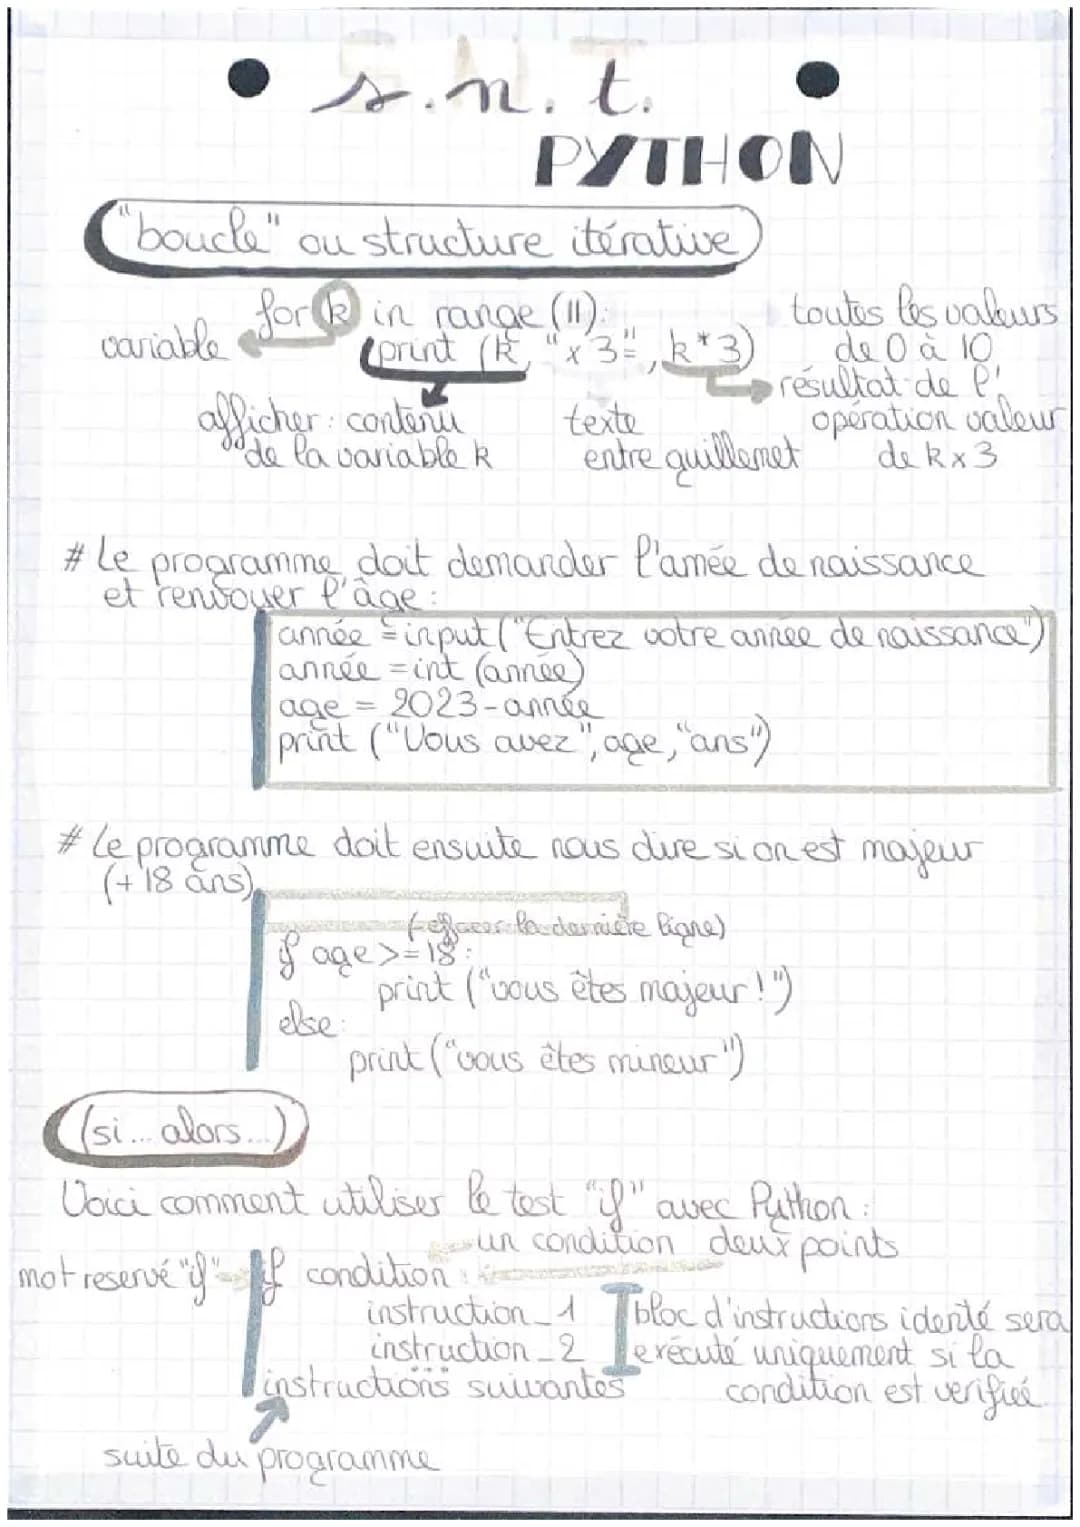 s.n.t.
PYTHON
"boucle" ou structure itérative
for k in range (11):
toutes les valeurs
de 0 à 10
variable
print (k, "x3=", k*3)
résultat de l'
opération valeur
de k x 3
afficher : contenu
de la variable k
texte
entre guillemet
# Le programme doit demander l'année de naissance
et renvoyer l'âge :
année = input ("Entrez votre année de naissance")
année = int (année)
age = 2023 - année
print ("Vous avez", age, "ans")
# Le programme doit ensuite nous dire si on est majeur
(+ 18 ans)
(effacer la dernière ligne)
if age >= 18 :
print ("vous êtes majeur !")
else :
print ("vous êtes mineur")
(si... alors...)
Voici comment utiliser le test "if" avec Python :
un condition deux points
mot reservé "if"
if condition :
instruction_1
instruction_2
...
bloc d'instructions identé sera
exécuté uniquement si la
condition est verifiée
instructions suivantes
suite du programme